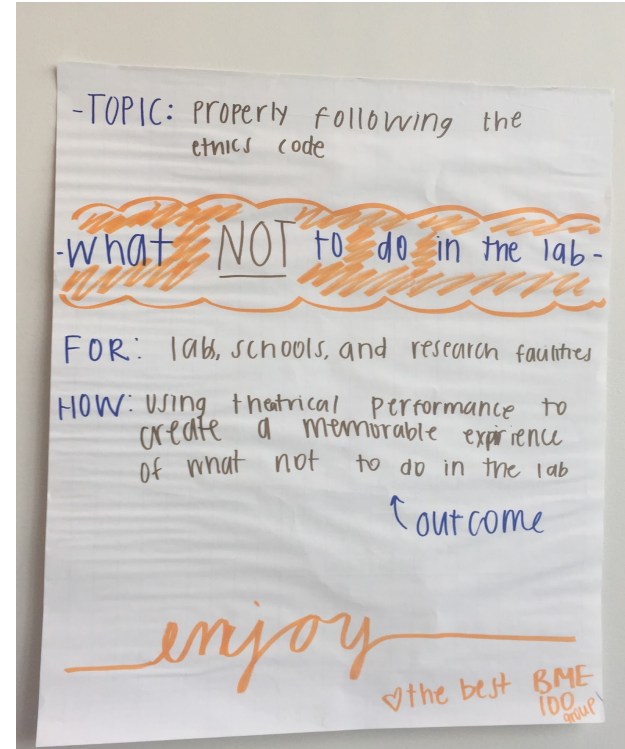 -TOPIC: properly following the
ethics code
-What NOT to do in the lab-
FOR: lab, schools, and research facilities
HOW: using theatrical performance to
create a memorable exprience
of what not to do in the lab
↑ outcome
enjoy
♡ the best BME
100
group